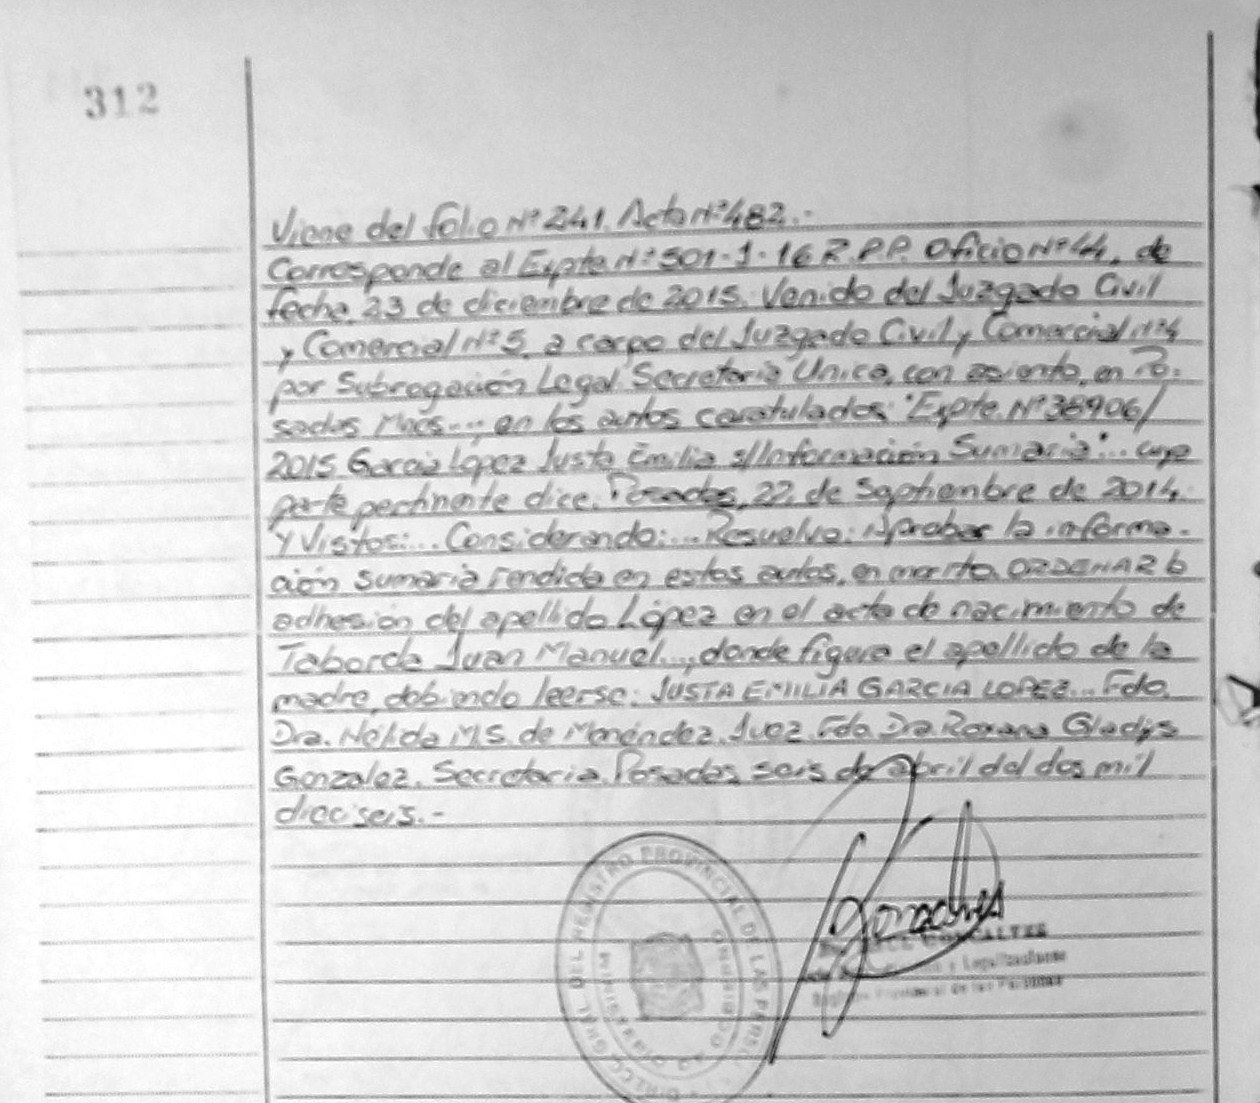 312
Viene del folio Nº 241. Acta Nº 482.-
Corresponde al Expte Nº 501-1-16 R.P.P. Oficio Nº 44, de
fecha 23 de diciembre de 2015. Venido del Juzgado Civil
y Comercial Nº 5, a cargo del Juzgado Civil y Comercial nº 4
por Subrogación Legal Secretaria Unica, con asiento, en Po-
sadas Mnes..., en los autos caratulados "Expte. Nº 38906/
2015 Garcia López Justa Emilia s/Información Sumaria"... cuya
parte pertinente dice. Posadas, 22 de Septiembre de 2014.
Y Vistos:... Considerando:... Resuelvo: Aprobar la informa-
ción sumaria rendida en estos autos, en merito ORDENAR la
adhesión del apellido López en el acta de nacimiento de
Taborda Juan Manuel..., donde figura el apellido de la
madre, debiendo leerse: JUSTA EMILIA GARCIA LOPEZ... Fdo.
Dra. Nélida M.S. de Menéndez. Juez. Fdo. Dra Roxana Gladys
Gonzalez. Secretaria. Posadas, seis de abril del dos mil
dieciseis.-
DIRECC GRAL DEL REGISTRO PROVINCIAL DE LAS
MINISTERIO DE GOBIERNO
y Legalizaciones
Registro Provincial de las Personas